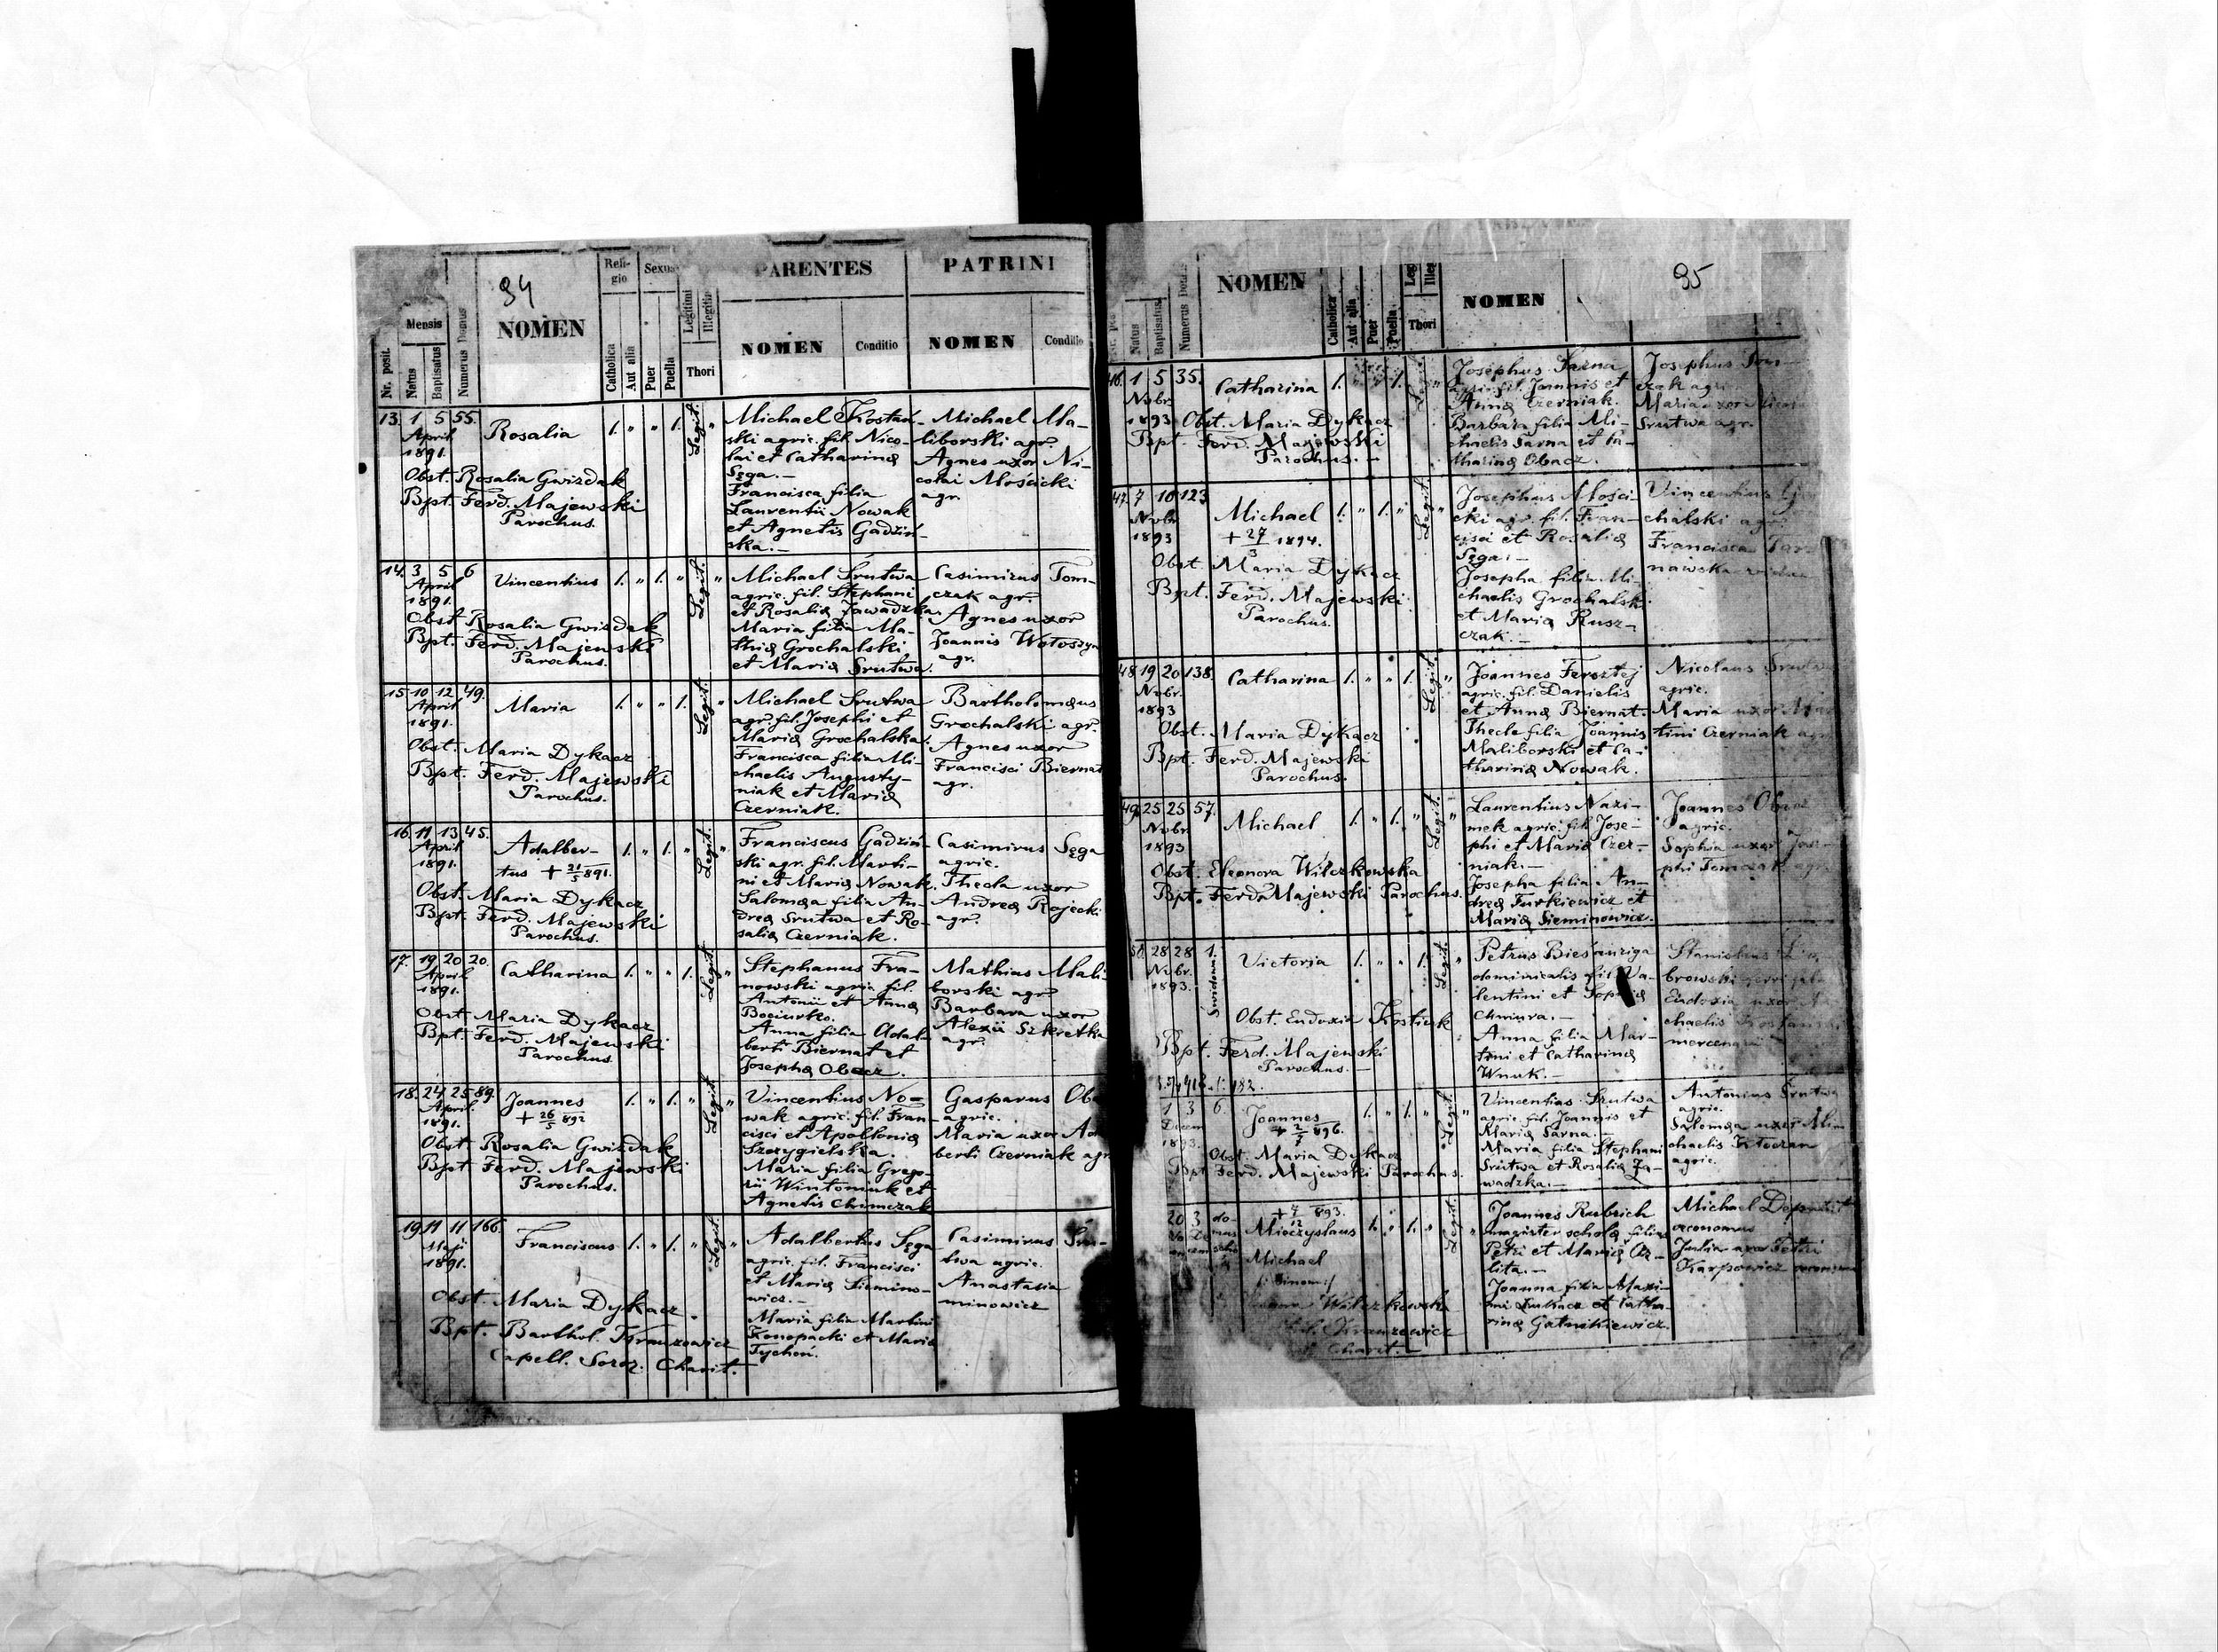 94
NOMEN
Religio
Sexus
PARENTES
PATRINI
Mensis
Nr. posit.
Natus
Baptisatus
Numerus Domus
Catholica
Aut alia
Puer
Puella
Legitimi
Illegitimi
Thori
NOMEN
Conditio
NOMEN
Conditio
13. 1 5 55.
April
1891.
Rosalia
1. " " 1. Legit. "
Obst. Rosalia Gwizdak
Bpt. Ferd. Majewski
Parochus.
Michael Kostań-
ski agric. fil. Nico-
lai et Catharinæ
Sęga.—
Francisca filia
Laurentii Nowak
et Agnetis Gadziń-
ska.—
Michael Ma-
liborski agr.
Agnes uxor Ni-
colai Mościcki
agr.
14. 3 5 6
April
1891.
Vincentius
1. " 1. " Legit. "
Obst. Rosalia Gwizdak
Bpt. Ferd. Majewski
Parochus.
Michael Srutwa
agric. fil. Stephani
et Rosaliæ Zawadzka.
Maria filia Ma-
thiæ Grochalski
et Mariæ Srutwa.
Casimirus Tom-
czak agr.
Agnes uxor
Joannis Wołoszyn
agr.
15. 10 12 49.
April
1891.
Maria
1. " " 1. Legit. "
Obst. Maria Dykacz
Bpt. Ferd. Majewski
Parochus.
Michael Srutwa
agr. fil. Josephi et
Mariæ Grochalska.
Francisca filia Mi-
chaelis Augusty-
niak et Mariæ
Czerniak.
Bartholomæus
Grochalski agr.
Agnes uxor
Francisci Biernat
agr.
16. 11 13 45.
April
1891.
Adalber-
tus + 21/5 891.
1. " 1. " Legit. "
Obst. Maria Dykacz
Bpt. Ferd. Majewski
Parochus.
Franciscus Gadziń-
ski agr. fil. Marti-
ni et Mariæ Nowak.
Salomæa filia An-
dreæ Srutwa et Ro-
saliæ Czerniak.
Casimirus Sęga
agric.
Thecla uxor
Andreæ Rojecki
agr.
17. 19 20 20.
April
1891.
Catharina
1. " " 1. Legit. "
Obst. Maria Dykacz
Bpt. Ferd. Majewski
Parochus.
Stephanus Fra-
nowski agric. fil.
Antonii et Annæ
Bociurko.
Anna filia Adal-
berti Biernat et
Josephæ Obacz.
Mathias Mali-
borski agr.
Barbara uxor
Alexii Szkretka
agr.
18. 24 25 89.
April.
1891.
Joannes
+ 26/5 892
1. " 1. " Legit. "
Obst. Rosalia Gwizdak
Bpt. Ferd. Majewski
Parochus.
Vincentius No-
wak agric. fil. Fran-
cisci et Apolloniæ
Szczygielska.
Maria filia Grego-
rii Wintoniuk et
Agnetis Chimczak
Gasparus
agric.
Maria uxor
berti Czerniak agr.
19. 11 11 166.
Maji
1891.
Franciscus
1. " 1. " Legit. "
Obst. Maria Dykacz
Bpt. Barthol. Kranzowicz
Capell. Soror. Charit.
Adalbertus Sęga
agric. fil. Francisci
et Mariæ Siemino-
wicz.—
Maria filia Martini
Konopacki et Mariæ
Tychoń.
Casimirus
twa agric.
Anastasia
minowicz
95
NOMEN
Natus
Baptisatus
Numerus
Catholica
Aut alia
Puer
Puella
Thori
NOMEN
46. 1 5 35.
Nvbr.
1893
Catharina
1. 1.
Obst. Maria Dykacz
Bpt. Ferd. Majewski
Parochus.—
Josephus Sarna
agric. fil. Joannis et
Annæ Czerniak.
Barbara filia Mi-
chaelis Sarna et Ca-
tharinæ Obacz.
Josephus Tom-
czak agric.
Maria uxor
Srutwa agr.
47. 7 10 123
Nvbr
1893
Michael
+ 27/3 1894.
1. " 1. " Legit. "
Obst. Maria Dykacz
Bpt. Ferd. Majewski
Parochus.
Josephus Mości-
cki agr. fil. Fran-
cisci et Rosaliæ
Sęga.—
Josepha filia Mi-
chaelis Grochalski
et Mariæ Rusz-
czak.—
Vincentius
chalski agr.
Francisca Tar-
nawska vidua
48. 19 20 138.
Nvbr.
1893
Catharina
1. " " 1. Legit. "
Obst. Maria Dykacz
Bpt. Ferd. Majewski
Parochus.
Joannes Fersztej
agric. fil. Danielis
et Annæ Biernat.
Thecle filia Joannis
Maliborski et Ca-
tharinæ Nowak.
Nicolaus Srutwa
agric.
Maria uxor Mar-
tini Czerniak agr.
49. 25 25 57.
Nvbr.
1893
Michael
1. " 1. " Legit. "
Obst. Eleonora Wilczkowska
Bpt. Ferd. Majewski Parochus.
Laurentius Nazi-
mek agric. fil. Jose-
phi et Mariæ Czer-
niak.—
Josepha filia An-
dreæ Turkiewicz et
Mariæ Sieminowicz.
Joannes
agric.
Sophia uxor
phi Tomczak agr.
50. 28 28 1.
Nvbr.
1893.
Victoria
1. " " 1. Legit. "
Obst. Eudoxia Kostiuk
Bpt. Ferd. Majewski
Parochus.—
Petrus Bieśanziga
dominicalis fil. Va-
lentini et Sophiæ
Chmura.—
Anna filia Mar-
tini et Catharinæ
Wnuk.—
Stanislaus
browski
Eudoxia uxor
chaelis
1 3 6.
1893.
Joannes
+ 2/5 896.
1. " 1. " Legit. "
Obst. Maria Dykacz
Bpt. Ferd. Majewski Parochus.
Vincentius Srutwa
agric. fil. Joannis et
Mariæ Sarna.—
Maria filia Stephani
Srutwa et Rosaliæ Za-
wadzka.—
Antonius Srutwa
agric.
Salomæa uxor Mi-
chaelis
agric.
20 3
893.
Mieczyslaus
Michael
/:binom:/
1. " 1. " Legit. "
Wilczkowska
Kranzowicz
Charit.—
Joannes Rubrich
magister scholæ filius
Petri et Mariæ
lita.—
Joanna filia Maxi-
mi et Catha-
rinæ Gatnikiewicz.
Michael
oeconomus
Julia uxor Petri
Karpowicz